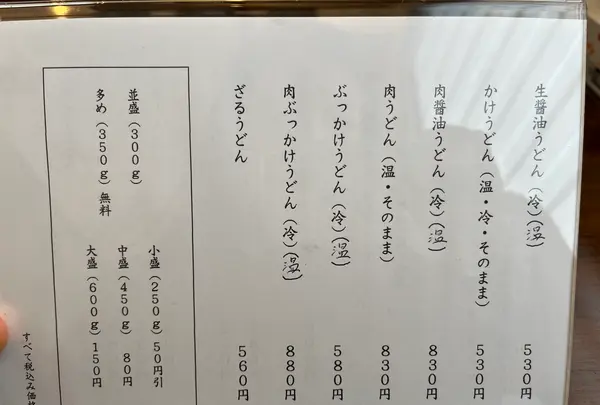 生醤油うどん（冷）（温） 530円
かけうどん（温・冷・そのまま） 530円
肉醤油うどん（冷）（温） 830円
肉うどん（温・そのまま） 830円
ぶっかけうどん（冷）（温） 580円
肉ぶっかけうどん（冷）（温） 880円
ざるうどん 560円
並盛（300g）
多め（350g）無料
小盛（250g）50円引
中盛（450g）80円
大盛（600g）150円
すべて税込み価格